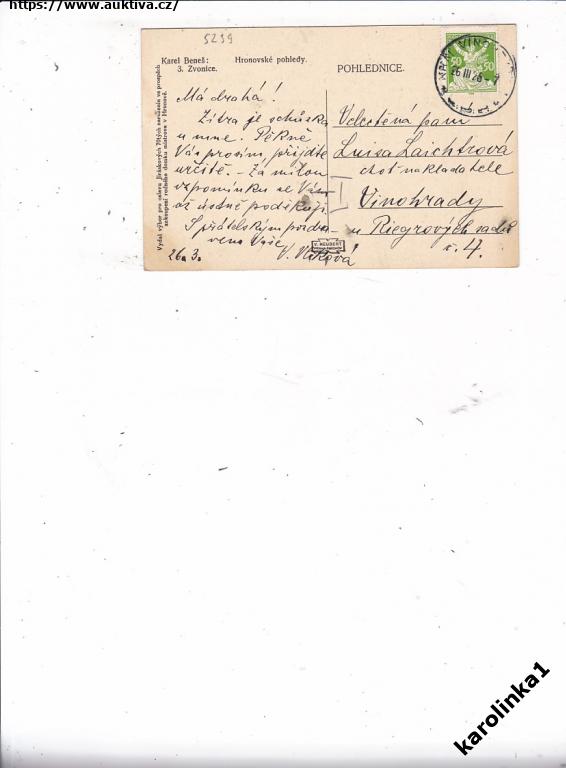 https://www.auktiva.cz/
5239
Karel Beneš: Hronovské pohledy.
3. Zvonice.
POHLEDNICE.
Vydal výbor pro oslavu Jiráskových 70tých narozenin ve prospěch
zakoupení rodného domku mistrova v Hronově.
Má drahá!
Zítra je schůzka
u mne. Pěkně
Vás prosím, přijďte
určitě. – Za milou
vzpomínku se Vám
až ústně poděkuji.
S přátelským pozdra-
vem Vaše
26. 3.
V. Vlčková
Velectěná paní
Luisa Laichtrová
choť nakladatele
Vinohrady
u Riegrových sadů
č. 4.
V. NEUBERT
50 50
26 III 26
karolinka1